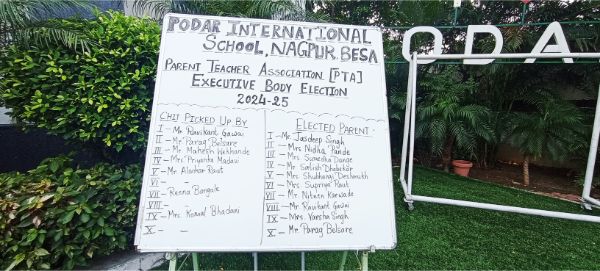 PODAR INTERNATIONAL
SCHOOL, NAGPUR BESA
PARENT TEACHER ASSOCIATION [PTA]
EXECUTIVE BODY ELECTION
2024-25
CHIT PICKED UP BY
I - Mr. Ravikant Gawai
II - Mr Parag Belsare
III - Mr. Mahesh Wekhande
IV - Mrs. Priyanka Madavi
V - Mr. Alankar Raut
VI -
VII - Reena Bangale
VIII -
IX - Mrs. Komal Bhadani
X - -
ELECTED PARENT
I - Mr. Jasdeep Singh
II - Mrs Nidha Pande
III - Mrs. Sumedha Dange
IV - Mr. Satish Dhabekar
V - Mrs. Shubhangi Deshmukh
VI - Mrs Supriya Raut
VII - Mr. Nitesh Karwade
VIII - Mr. Ravikant Gawai
IX - Mrs. Varsha Singh
X - Mr. Parag Belsare
ODA